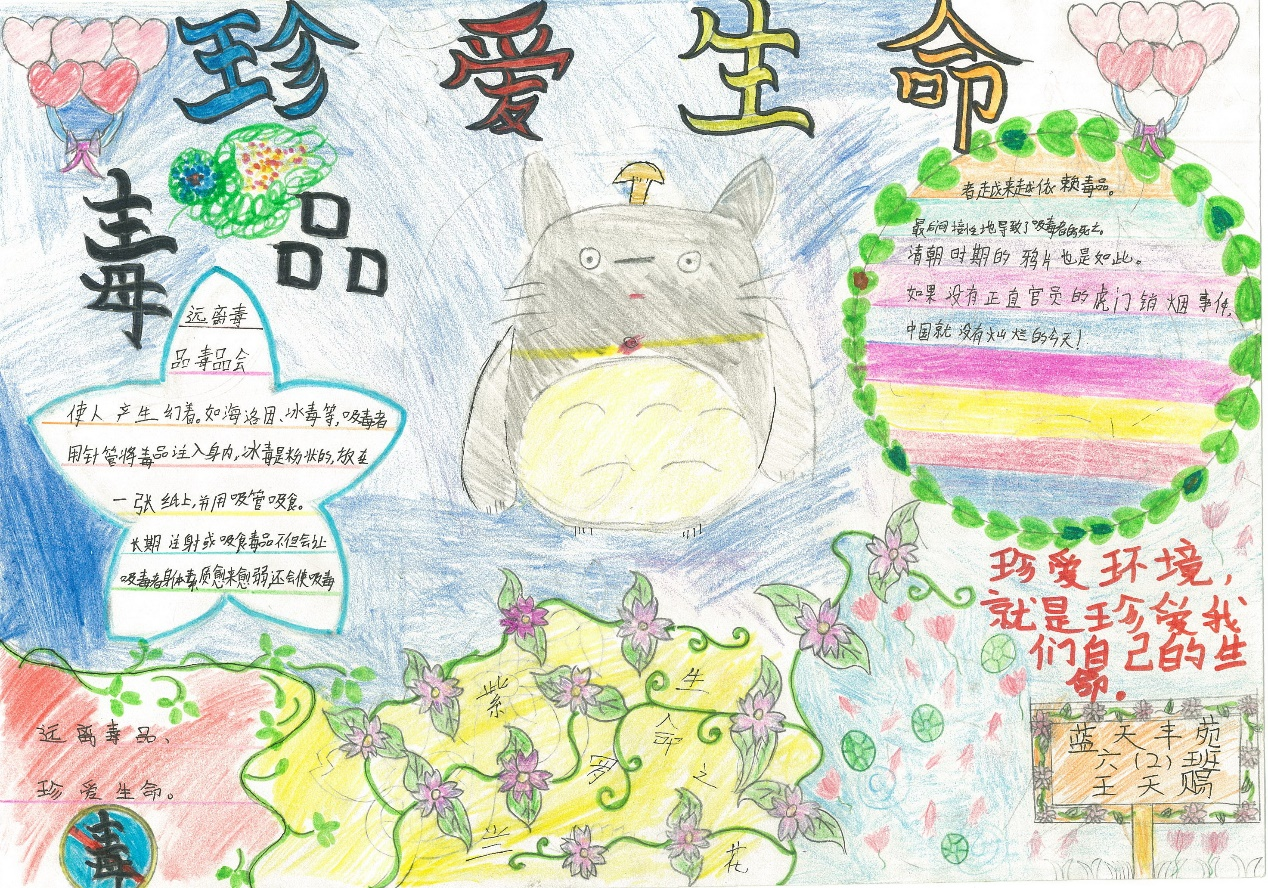 珍爱生命
毒品
远离毒
品毒品会
使人产生幻着。如海洛因、冰毒等,吸毒者
用针管将毒品注入身内,冰毒是粉状的,放在
一张纸上,并用吸管吸食。
长期注射或吸食毒品不但会让
吸毒者身体素质愈来愈弱,还会使吸毒
者越来越依赖毒品。
最后间接性地导致了吸毒者的死亡。
清朝时期的鸦片也是如此。
如果没有正直官员的虎门销烟事件,
中国就没有灿烂的今天!
珍爱环境,
就是珍爱我
们自己的生
命.
远离毒品、
珍爱生命。
毒
紫罗兰
生命之花
蓝天丰苑
六(2)班
王天赐